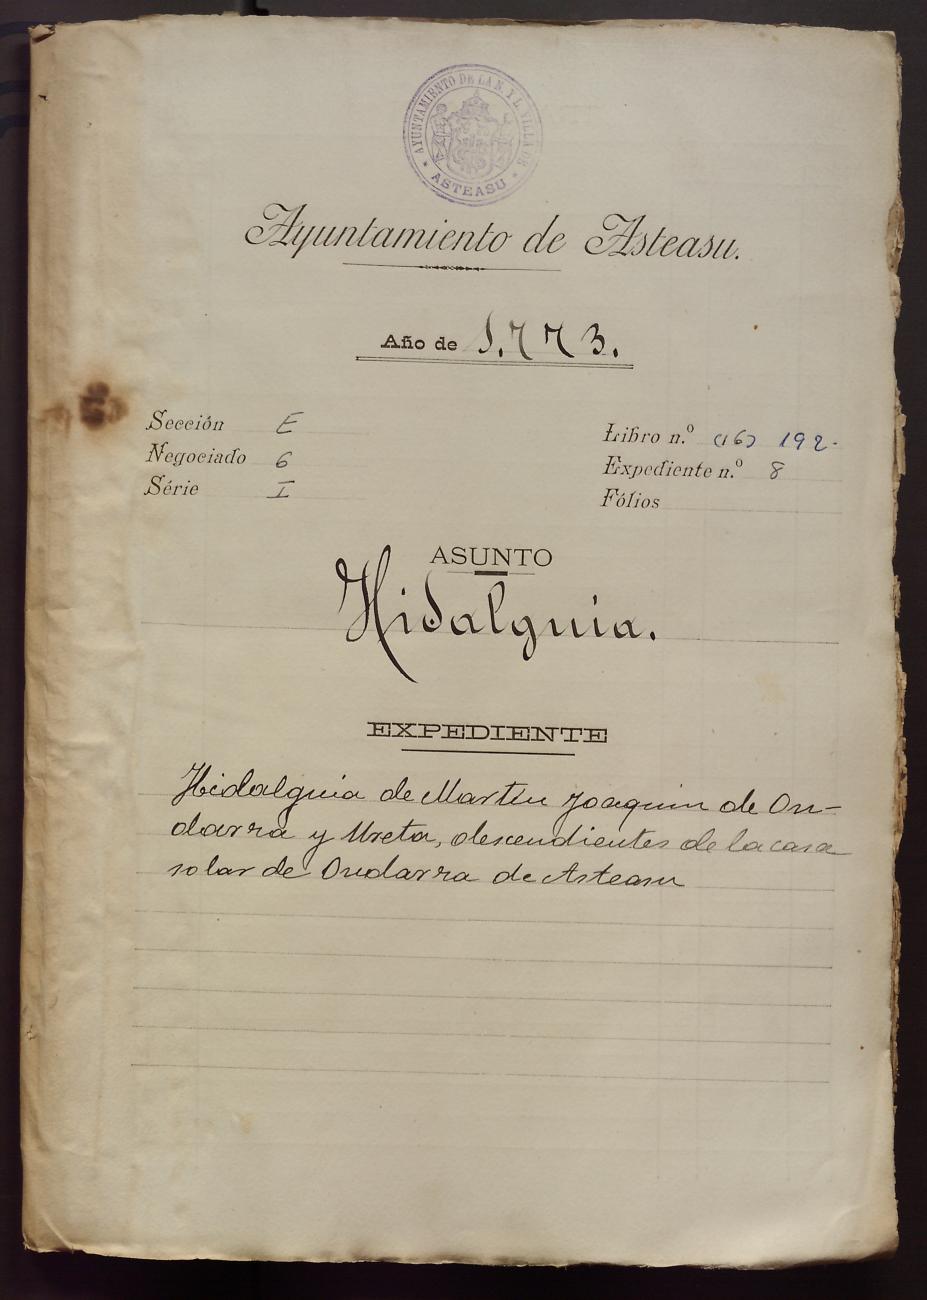 AYUNTAMIENTO DE LA N. Y L. VILLA DE
* ASTEASU *
Ayuntamiento de Asteasu.
Año de 1.773.
Sección E
Negociado 6
Série I
Libro n.º (16) 192-
Expediente n.º 8
Fólios
ASUNTO
Hidalguia.
EXPEDIENTE
Hidalguia de Martin Joaquin de On-
darra y Ureta, descendientes de la casa
solar de Ondarra de Asteasu